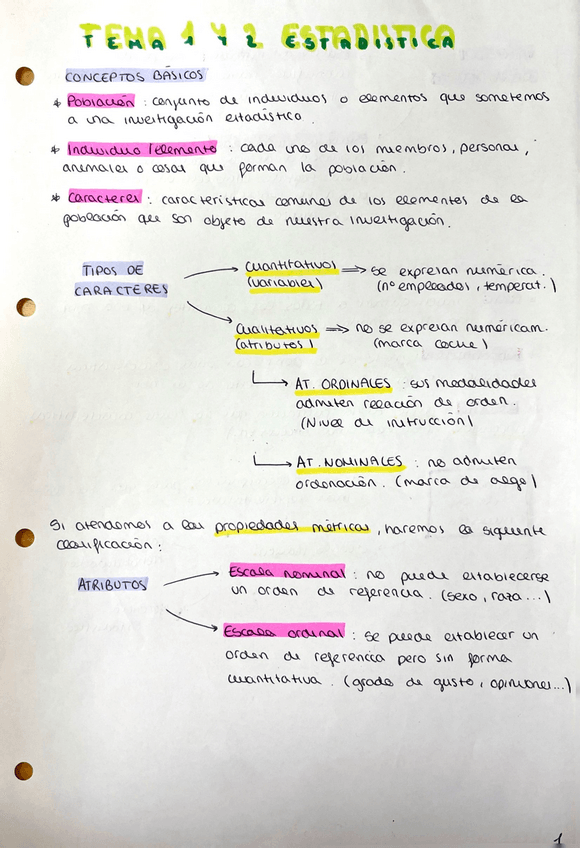 TEMA 1 Y 2 ESTADISTICA
CONCEPTOS BÁSICOS
* Población : conjunto de individuos o elementos que sometemos
a una investigación estadístico.
* Individuo / elemento : cada uno de los miembros, personas,
animales o cosas que forman la población.
* Caracteres : características comunes de los elementos de la
población que son objeto de nuestra investigación.
TIPOS DE
CARACTERES
Cuantitativos ⇒ se expresan numérica.
(variables) (nº empleados, temperat.)
Cualitativos ⇒ no se expresan numéricam.
(atributos) (marca coche)
→ AT. ORDINALES : sus modalidades
admiten relación de orden.
(Nivel de instrucción)
→ AT. NOMINALES : no admiten
ordenación. (marca de algo)
Si atendemos a las propiedades métricas, haremos la siguiente
clasificación :
ATRIBUTOS
Escala nominal : no puede establecerse
un orden de referencia. (sexo, raza...)
Escala ordinal : se puede establecer un
orden de referencia pero sin forma
cuantitativa. (grado de gusto, opiniones...)
1